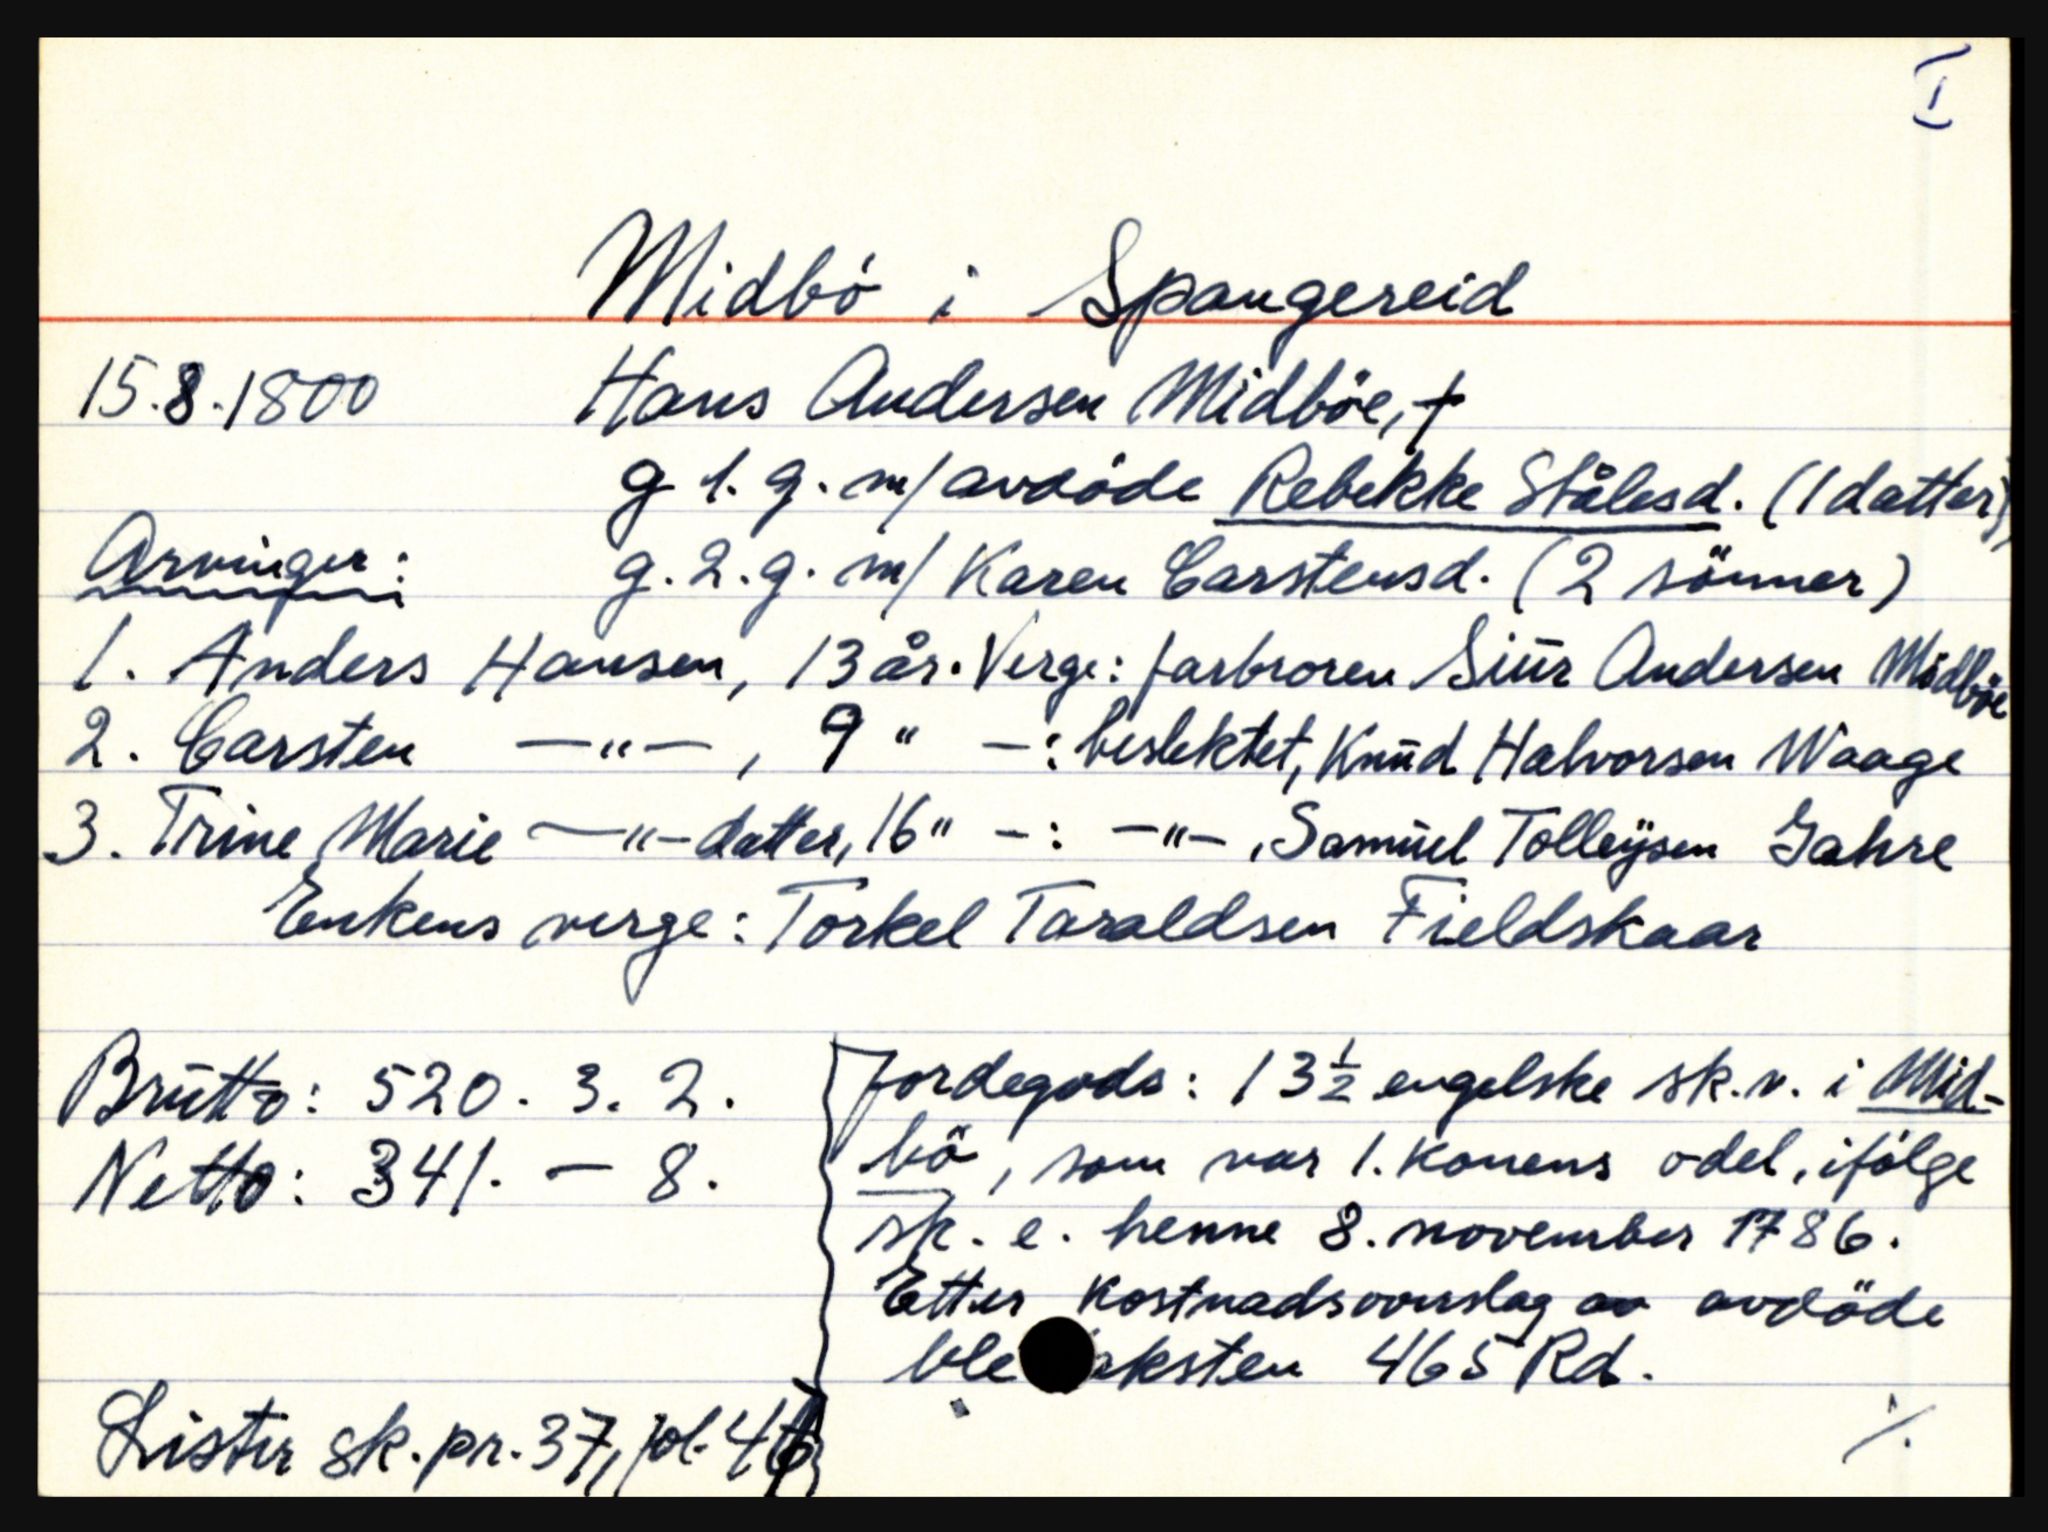 I
Midbö i Spangereid
15.8.1800 Hans Andersen Midböe, †
g 1. g. m/ avdöde Rebekke Stålesd. (1 datter)
Arvinger: g. 2. g. m/ Karen Carstensd. (2 sönner)
1. Anders Hansen, 13 år. Verge: farbroren Siūr Andersen Midböe
2. Carsten —"—, 9 " —: beslektet, Knūd Halvorsen Waage
3. Trine Marie —"—datter, 16 " —: —"—, Samūel Tolleÿsen Jahre
Enkens verge: Torkel Taraldsen Fieldskaar
Brūtto: 520. 3. 2.
Netto: 341. — 8.
Jordegods: 13 ½ engelske sk. v. i Mid-
bö, som var 1. konens odel, ifölge
sk. e. henne 8. november 1786.
Etter kostnadsoverslag av avdöde
ble ksten 465 Rd.
Lister sk. pr. 37, fol.
./.